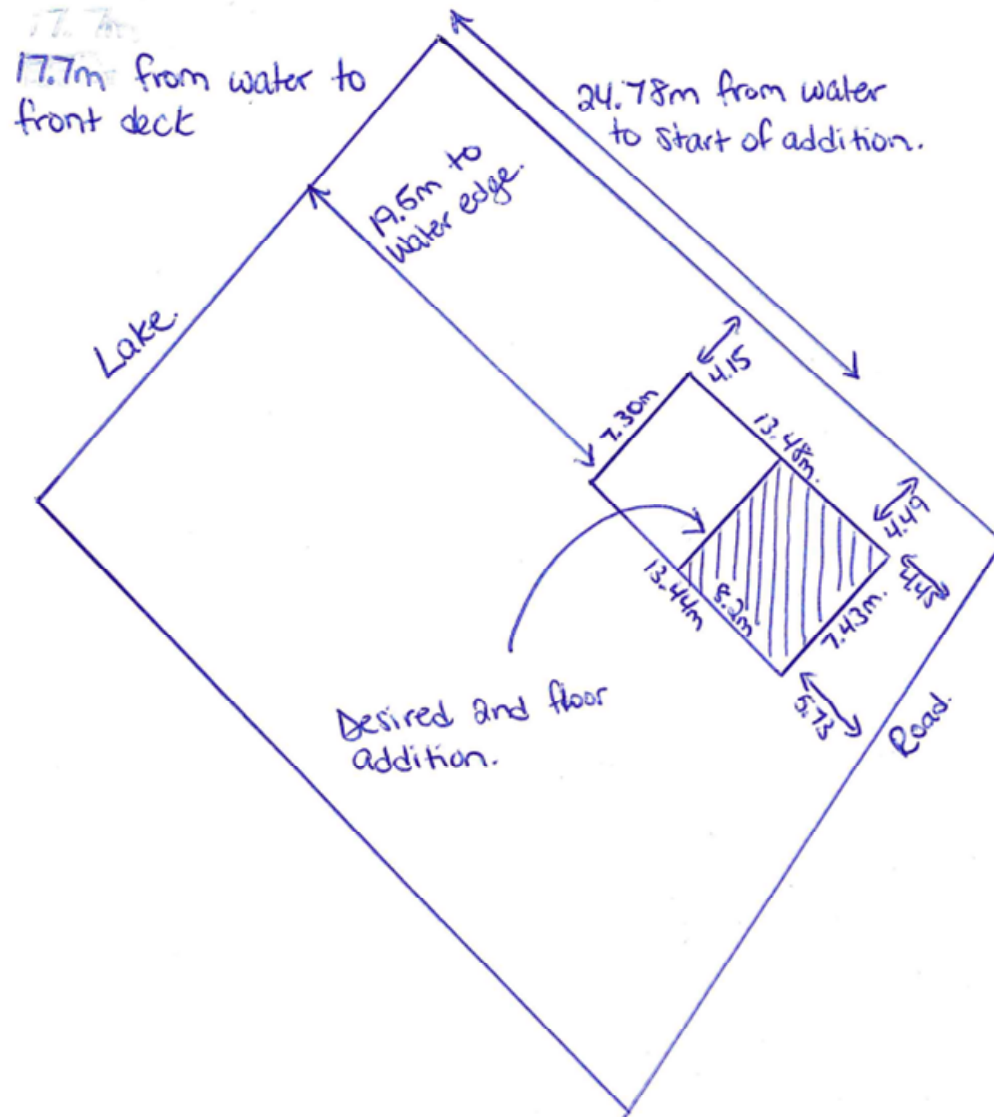 17.7m
17.7m from water to
front deck
24.78m from water
to start of addition.
19.5m to
water edge.
Lake.
4.15
7.30m
13.48m.
4.49
4.45
13.44m
8.2m
7.43m.
5.73
Road.
Desired 2nd floor
addition.